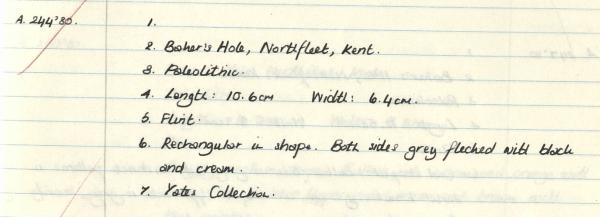 A. 244'80. 1.
2. Baker's Hole, Northfleet, Kent.
3. Paleolithic.
4. Length: 10.6cm Width: 6.4cm.
5. Flint.
6. Rectangular in shape. Both sides grey flecked with black
and cream.
7. Yates Collection.